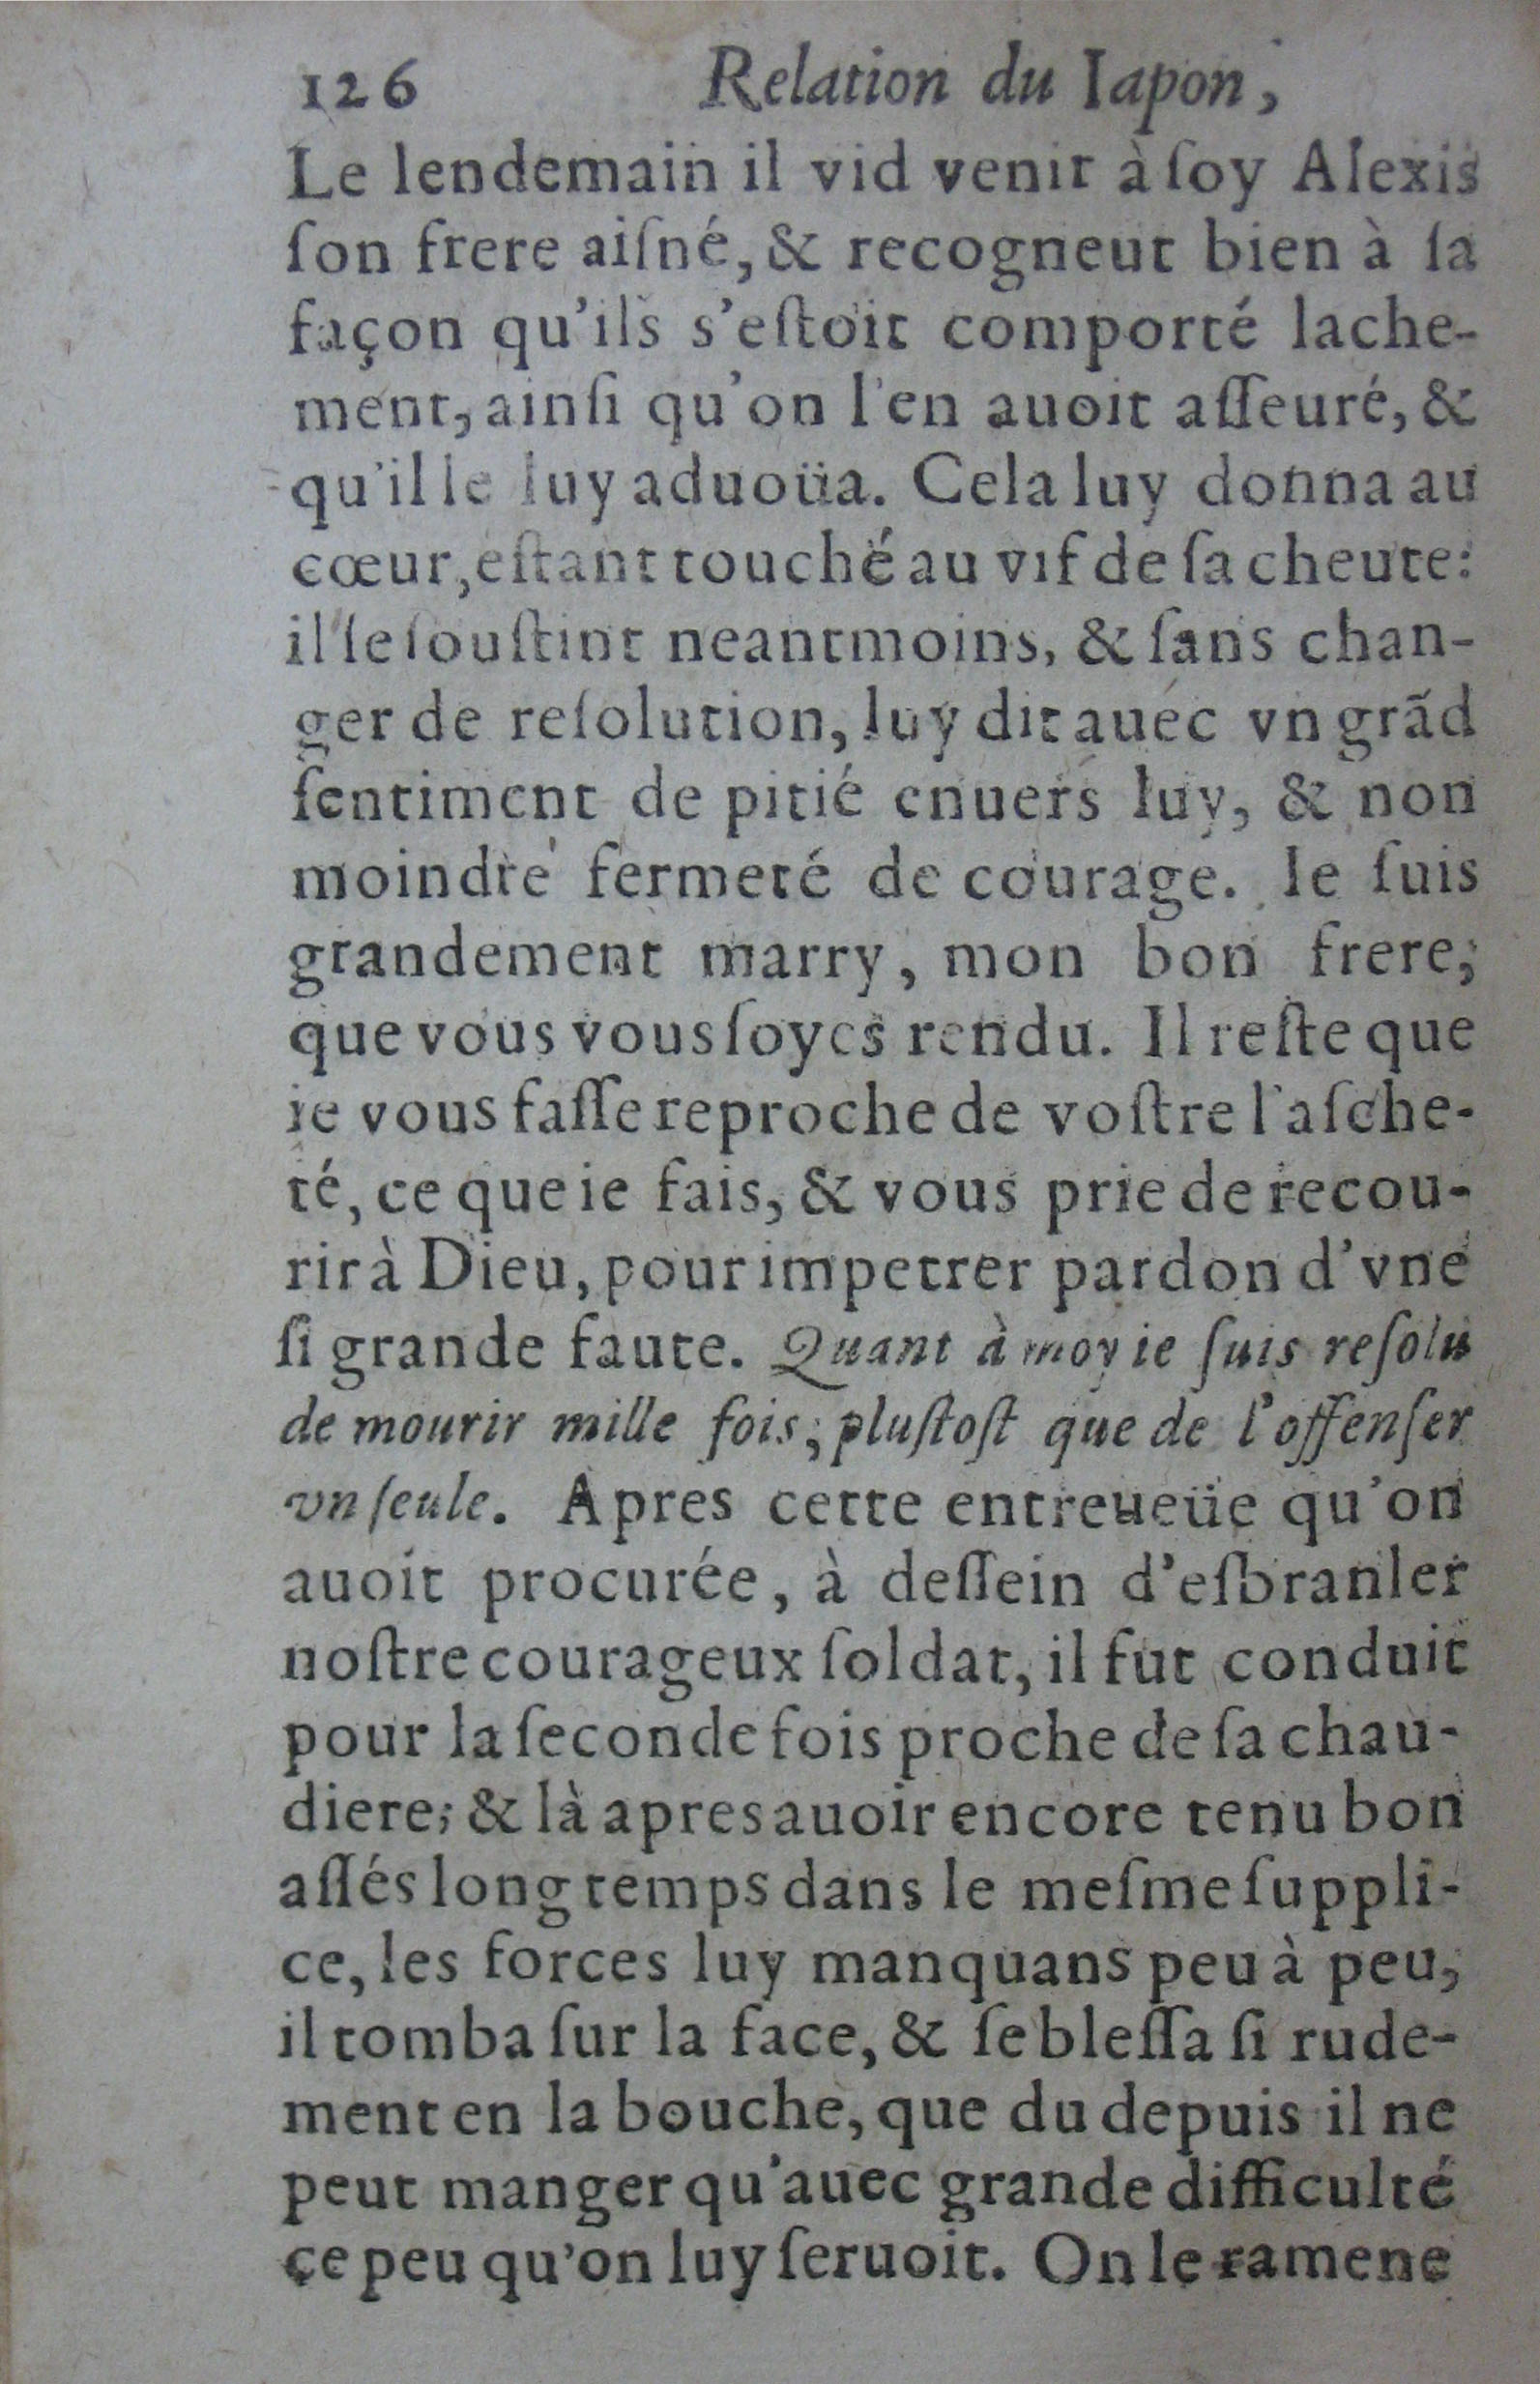 126 Relation du Iapon,
Le lendemain il vid venir à ſoy Alexis
ſon frere aiſné, & recogneut bien à ſa
façon qu'ils s'eſtoit comporté lache-
ment, ainſi qu'on l'en auoit aſſeuré, &
qu'il le luy aduoüa. Cela luy donna au
cœur, eſtant touché au vif de ſa cheute:
il ſe ſouſtint neantmoins, & ſans chan-
ger de reſolution, luy dit auec vn grãd
ſentiment de pitié enuers luy, & non
moindre fermeté de courage. Ie ſuis
grandement marry, mon bon frere,
que vous vous ſoyes rendu. Il reſte que
ie vous faſſe reproche de voſtre l'aſche-
té, ce que ie fais, & vous prie de recou-
rir à Dieu, pour impetrer pardon d'vne
ſi grande faute. Quant à moy ie ſuis reſolu
de mourir mille fois, pluſtoſt que de l'offenſer
vn ſeule. Apres cette entreueüe qu'on
auoit procurée, à deſſein d'eſbranler
noſtre courageux ſoldat, il fut conduit
pour la ſeconde fois proche de ſa chau-
diere; & là apres auoir encore tenu bon
aſſés long temps dans le meſme ſuppli-
ce, les forces luy manquans peu à peu,
il tomba ſur la face, & ſe bleſſa ſi rude-
ment en la bouche, que du depuis il ne
peut manger qu'auec grande difficulté
ce peu qu'on luy ſeruoit. On le ramene